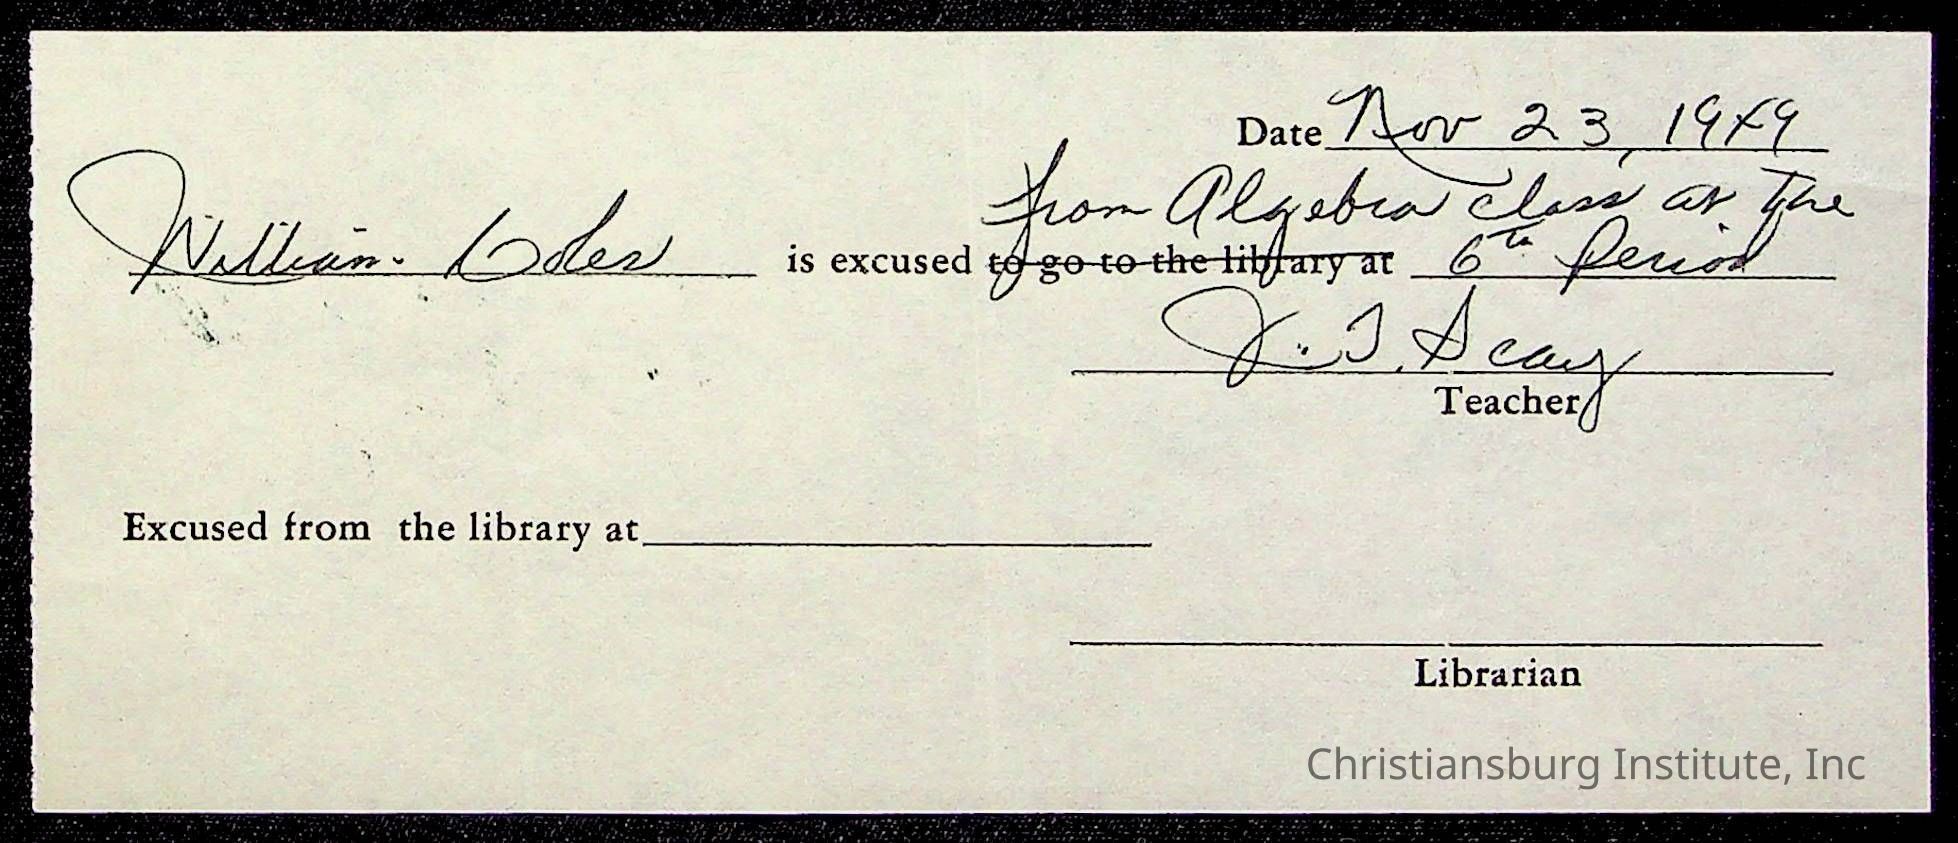 Date Nov 23, 1949
from Algebra class at the
William Coles is excused to go to the library at 6th Period
J. T. Scay
Teacher
Excused from the library at
Librarian
Christiansburg Institute, Inc